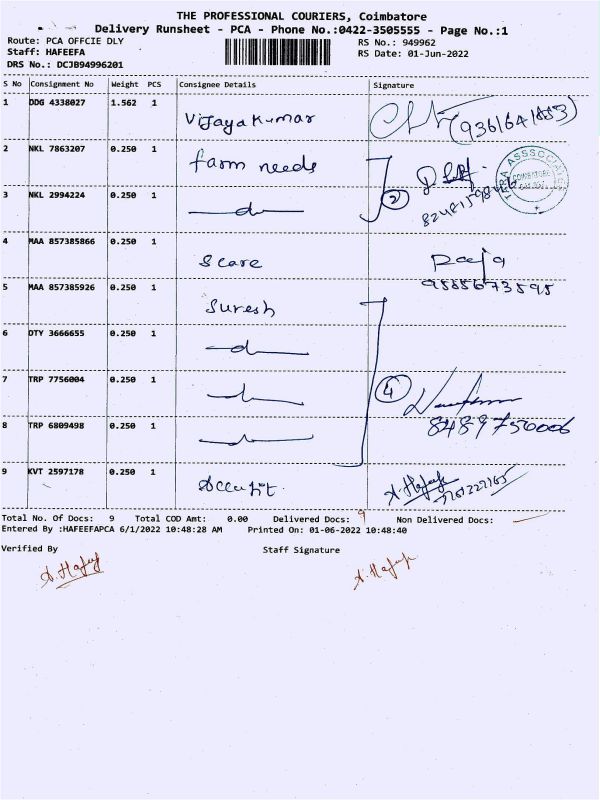 THE PROFESSIONAL COURIERS, Coimbatore
Delivery Runsheet - PCA - Phone No.:0422-3505555 - Page No.:1
Route: PCA OFFCIE DLY
RS No.: 949962
Staff: HAFEEFA
RS Date: 01-Jun-2022
DRS No.: DCJB94996201
S No Consignment No Weight PCS Consignee Details Signature
1 DDG 4338027 1.562 1 Vijayakumar (9361641883)
2 NKL 7863207 0.250 1 farm needs
3 NKL 2994224 0.250 1 2
4 MAA 857385866 0.250 1 scare Raja
9585673595
5 MAA 857385926 0.250 1 Suresh
6 DTY 3666655 0.250 1
7 TRP 7756004 0.250 1 4
8 TRP 6809498 0.250 1 8489750006
9 KVT 2597178 0.250 1 A. Hafeefa
Total No. Of Docs: 9 Total COD Amt: 0.00 Delivered Docs: 9 Non Delivered Docs:
Entered By :HAFEEFAPCA 6/1/2022 10:48:28 AM Printed On: 01-06-2022 10:48:40
Verified By Staff Signature
A. Hafeefa A. Hafeefa